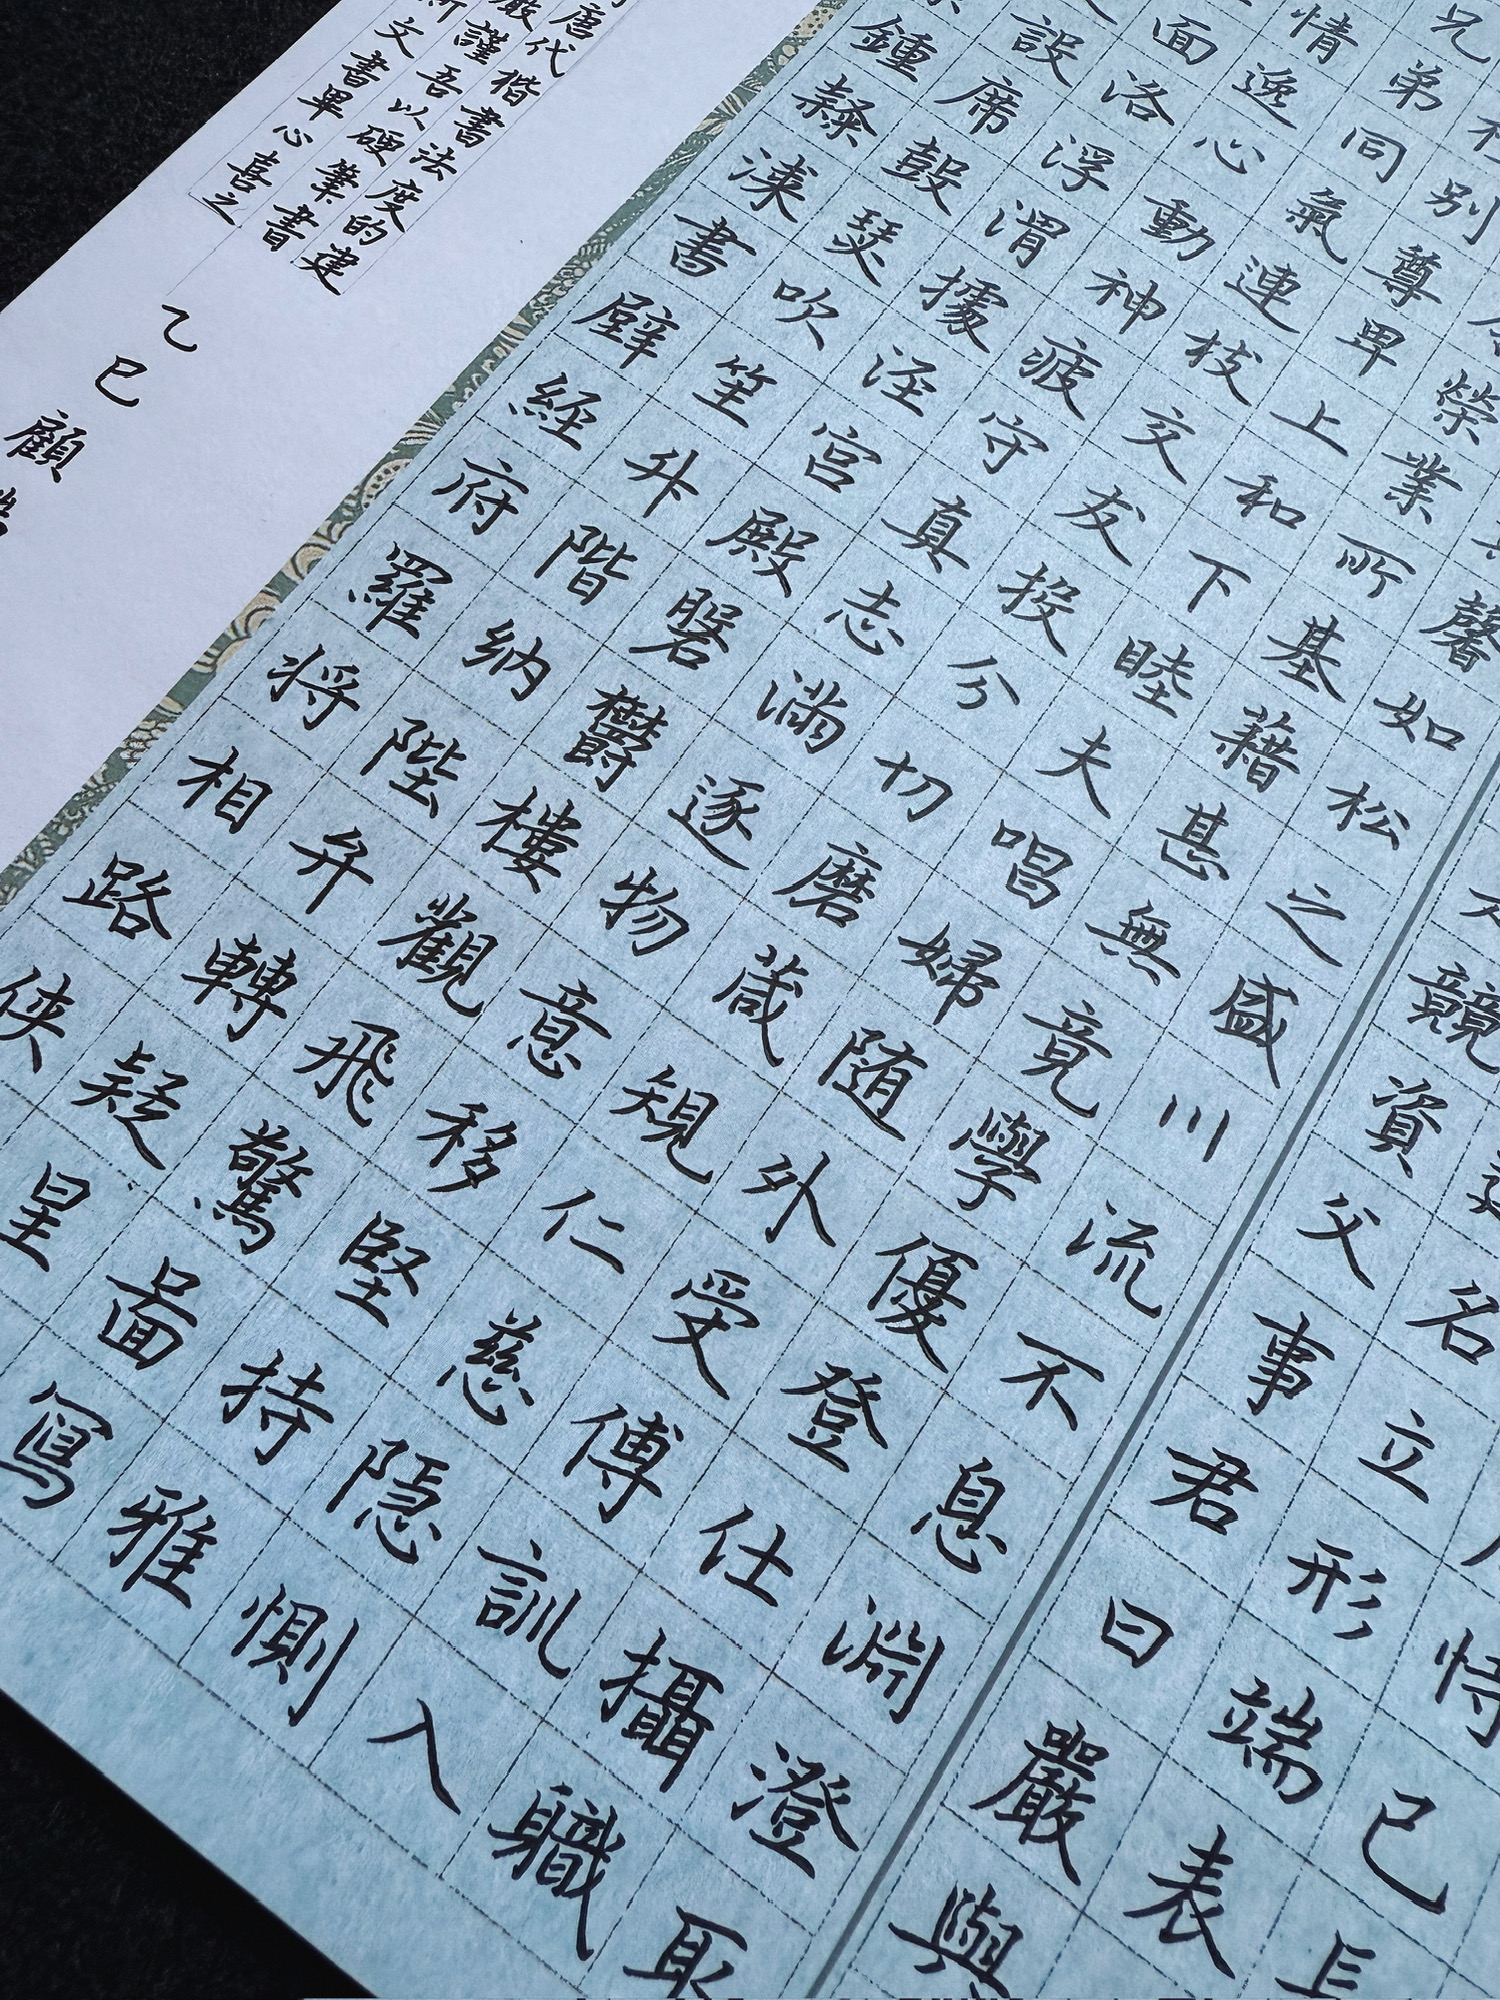 恃己長
名立形端表
競資父事君曰嚴與
馨如松之盛川流不息淵澄取
榮業所基藉甚無竟學優登仕攝職
別尊卑上和下睦夫唱婦随外受傅訓入
兄弟同氣連枝交友投分切磨葴規仁慈隐惻
情逸心動神疲守真志滿逐物意移堅持雅
面洛浮渭據涇宮殿磐欝樓觀飛驚啚寫
設席鼓瑟吹笙升階納陛弁轉疑星
鍾隸漆書壁經府羅将相路俠
唐代楷書法度的建
嚴謹吾以硬筆書
斯文書畢心喜之
乙巳顧